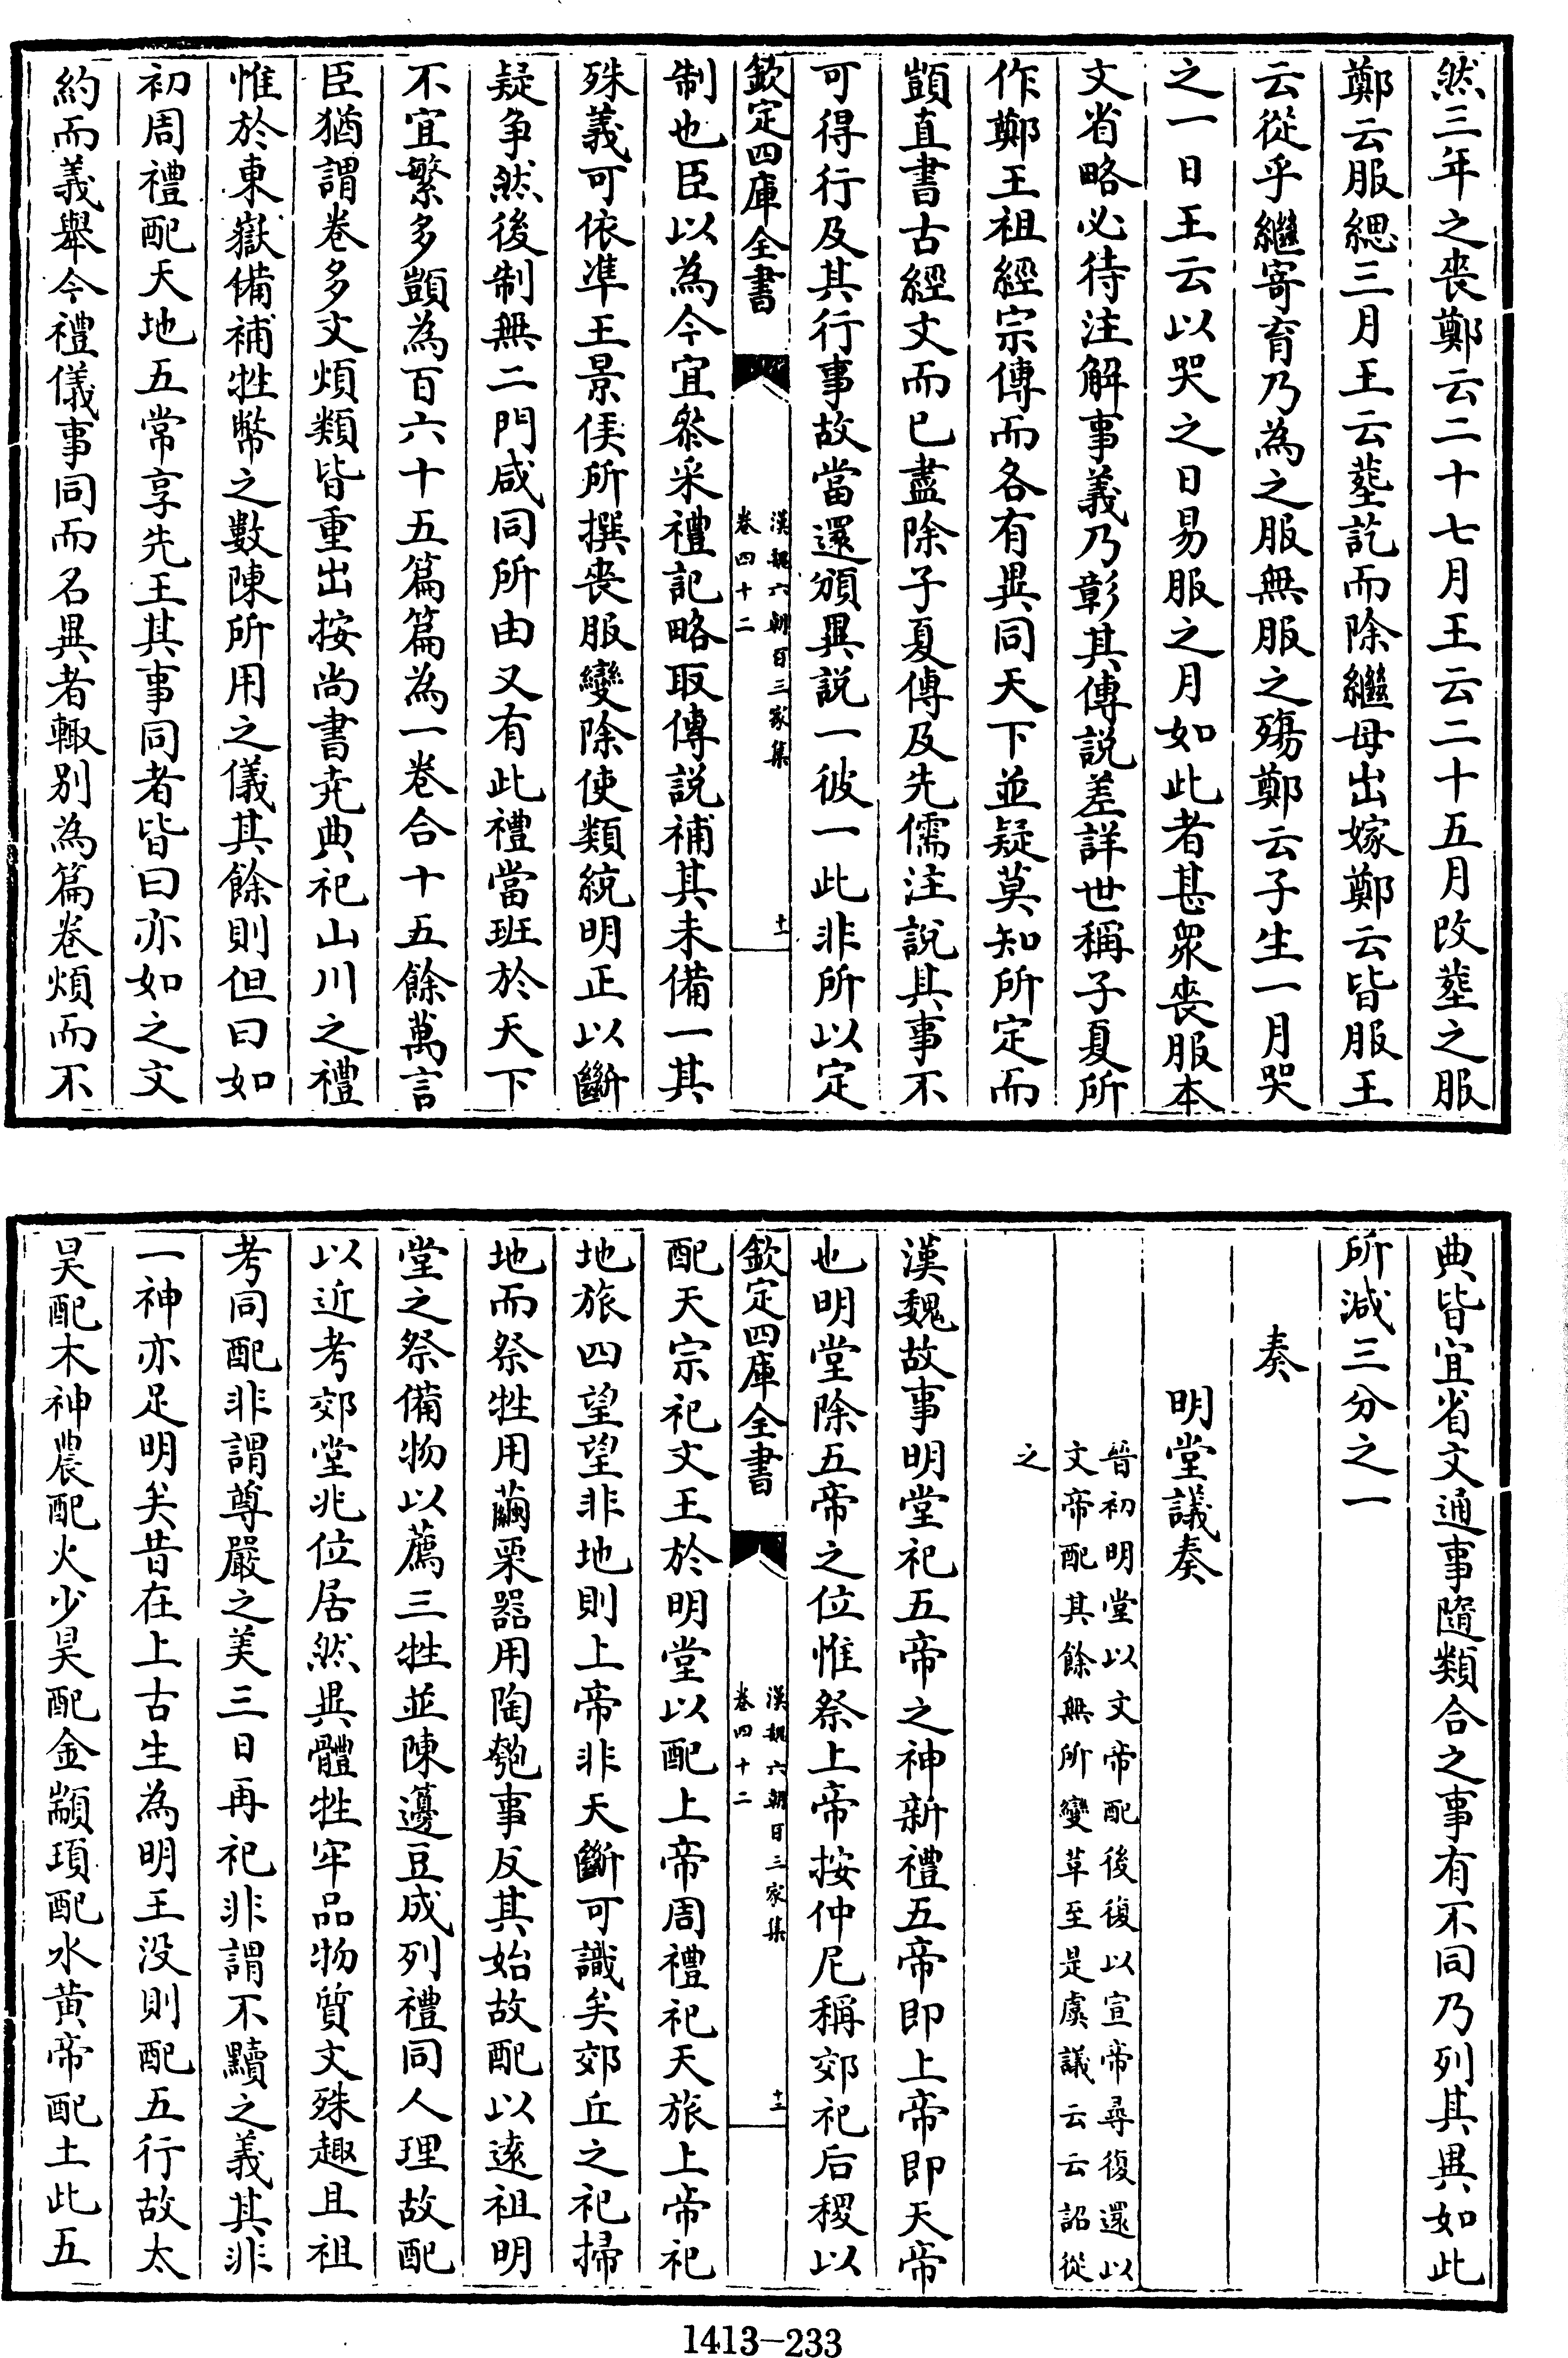 然三年之喪鄭云二十七月王云二十五月改塟之服
鄭云服緦三月王云塟訖而除繼母出嫁鄭云皆服王
云從乎繼寄育乃為之服無服之殤鄭云子生一月哭
之一日王云以哭之日易服之月如此者甚衆喪服本
文省略必待注解事義乃彰其傳説差詳世稱子夏所
作鄭王祖經宗傳而各有異同天下並疑莫知所定而
顗直書古經文而已盡除子夏傳及先儒注說其事不
可得行及其行事故當還頒異説一彼一此非所以定
欽定四庫全書
漢魏六朝百三家集
卷四十二
十一
制也臣以為今宜叅采禮記略取傳説補其未備一其
殊義可依凖王景侯所撰喪服變除使類統明正以斷
疑争然後制無二門咸同所由又有此禮當班於天下
不宜繁多顗為百六十五篇篇為一卷合十五餘萬言
臣猶謂卷多文煩類皆重出按尚書堯典祀山川之禮
惟於東嶽備補牲幣之數陳所用之儀其餘則但曰如
初周禮配天地五常享先王其事同者皆曰亦如之文
約而義舉今禮儀事同而名異者輙別為篇卷煩而不
典皆宜省文通事隨類合之事有不同乃列其異如此
所減三分之一
奏
明堂議奏
晉初明堂以文帝配後復以宣帝尋復還以
文帝配其餘無所變草至是虞議云云詔從
之
漢魏故事明堂祀五帝之神新禮五帝即上帝即天帝
也明堂除五帝之位惟祭上帝按仲尼稱郊祀后稷以
欽定四庫全書
漢魏六朝百三家集
卷四十二
十二
配天宗祀文王於明堂以配上帝周禮祀天旅上帝祀
地旅四望望非地則上帝非天斷可識矣郊丘之祀掃
地而祭牲用繭栗器用陶匏事反其始故配以遠祖明
堂之祭備物以薦三牲並陳籩豆成列禮同人理故配
以近考郊堂兆位居然異體牲牢品物質文殊趣且祖
考同配非謂尊嚴之美三日再祀非謂不黷之義其非
一神亦足明矣昔在上古生為明王没則配五行故太
昊配木神農配火少昊配金顓頊配水黄帝配土此五
1413-233